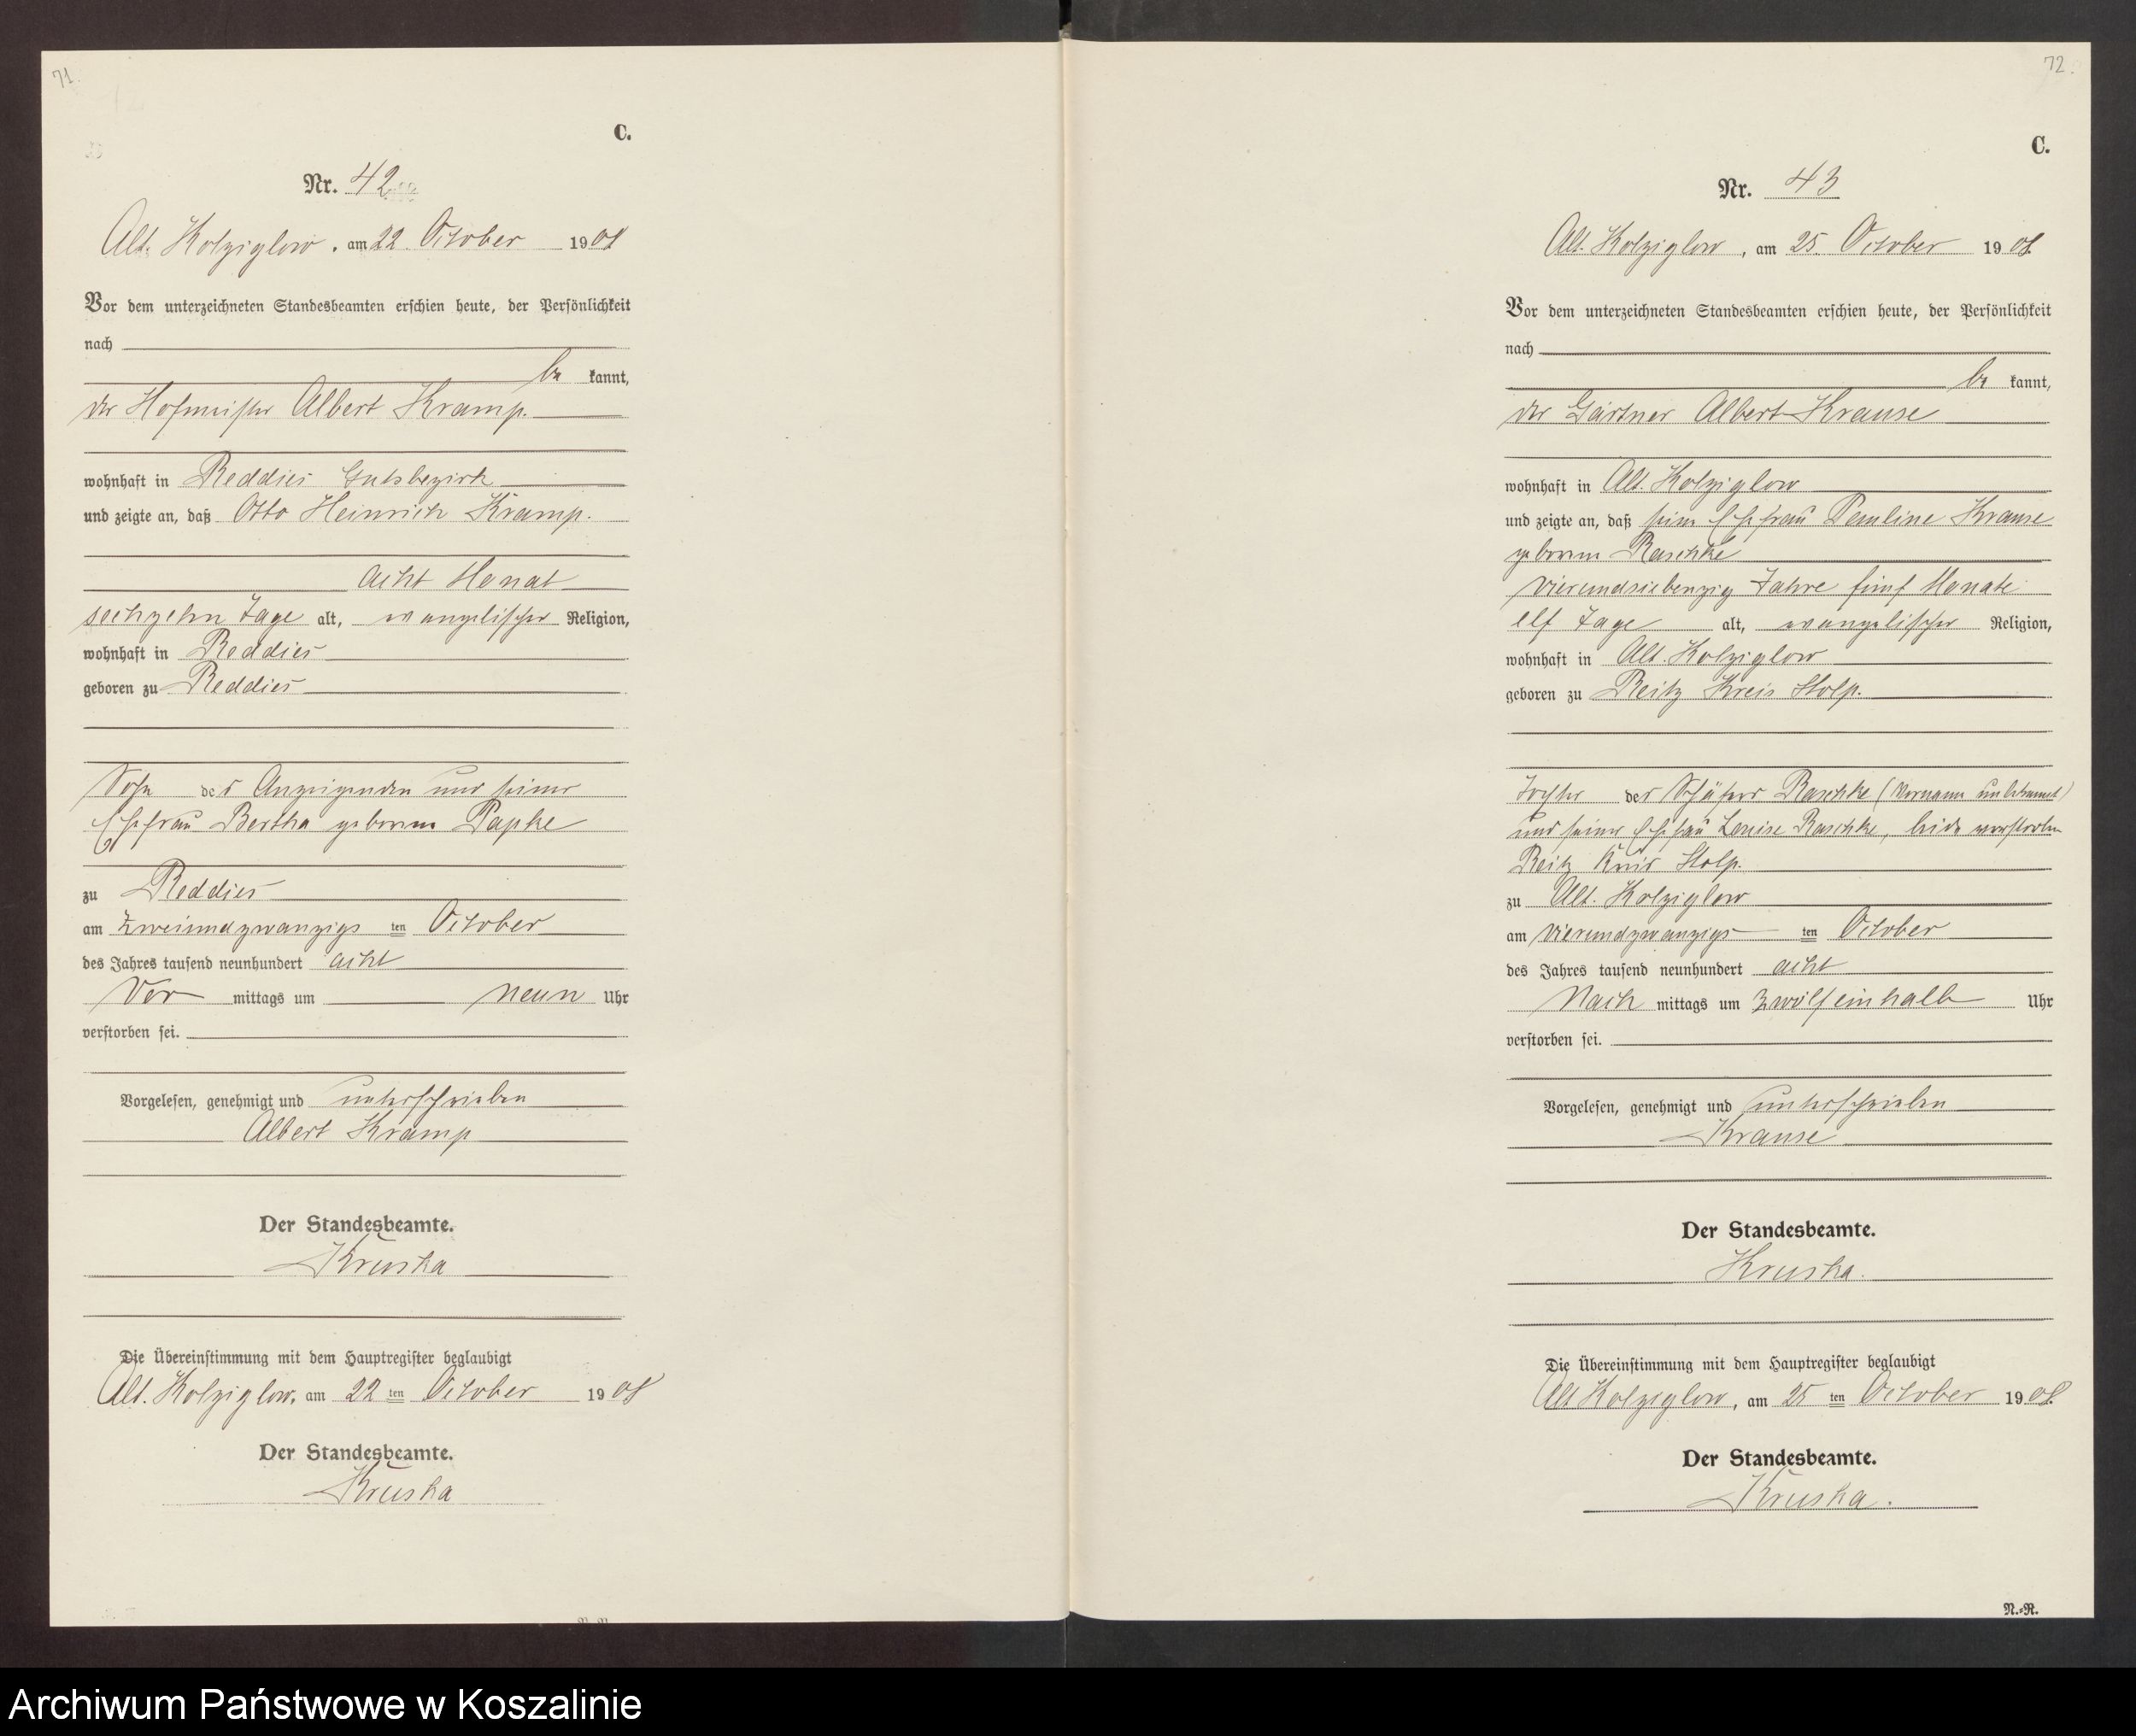 71.
C.
Nr. 42
Alt. Kolziglow, am 22 October 1908
Vor dem unterzeichneten Standesbeamten erschien heute, der Persönlichkeit
nach
be kannt,
der Hofmeister Albert Kramp.
wohnhaft in Reddies Gutsbezirk
und zeigte an, daß Otto Heinrich Kramp.
acht Monat
sechzehn Tage alt, evangelischer Religion,
wohnhaft in Reddies
geboren zu Reddies
Sohn des Anzeigenden und seiner
Ehefrau Bertha geborene Papke
zu Reddies
am zweiundzwanzigs ten October
des Jahres tausend neunhundert acht
Vor mittags um neun Uhr
verstorben sei.
Vorgelesen, genehmigt und unterschrieben
Albert Kramp
Der Standesbeamte.
Kruska
Die Übereinstimmung mit dem Hauptregister beglaubigt
Alt. Kolziglow, am 22 ten October 1908
Der Standesbeamte.
Kruska
72.
C.
Nr. 43
Alt. Kolziglow, am 25. October 1908
Vor dem unterzeichneten Standesbeamten erschien heute, der Persönlichkeit
nach
be kannt,
der Gärtner Albert Krause
wohnhaft in Alt. Kolziglow
und zeigte an, daß seine Ehefrau Pauline Krause
geborene Raschke
vierundsiebenzig Jahre fünf Monate
elf Tage alt, evangelischer Religion,
wohnhaft in Alt. Kolziglow
geboren zu Reitz Kreis Stolp.
Tochter des Schäfers Raschke (Vorname unbekannt)
und seiner Ehefrau Louise Raschke, beide verstorben
Reitz Kreis Stolp.
zu Alt. Kolziglow
am vierundzwanzigs ten October
des Jahres tausend neunhundert acht
Nach mittags um zwölfeinhalb Uhr
verstorben sei.
Vorgelesen, genehmigt und unterschrieben
Krause
Der Standesbeamte.
Kruska.
Die Übereinstimmung mit dem Hauptregister beglaubigt
Alt Kolziglow, am 25 ten October 1908.
Der Standesbeamte.
Kruska.
N.-R.
Archiwum Państwowe w Koszalinie